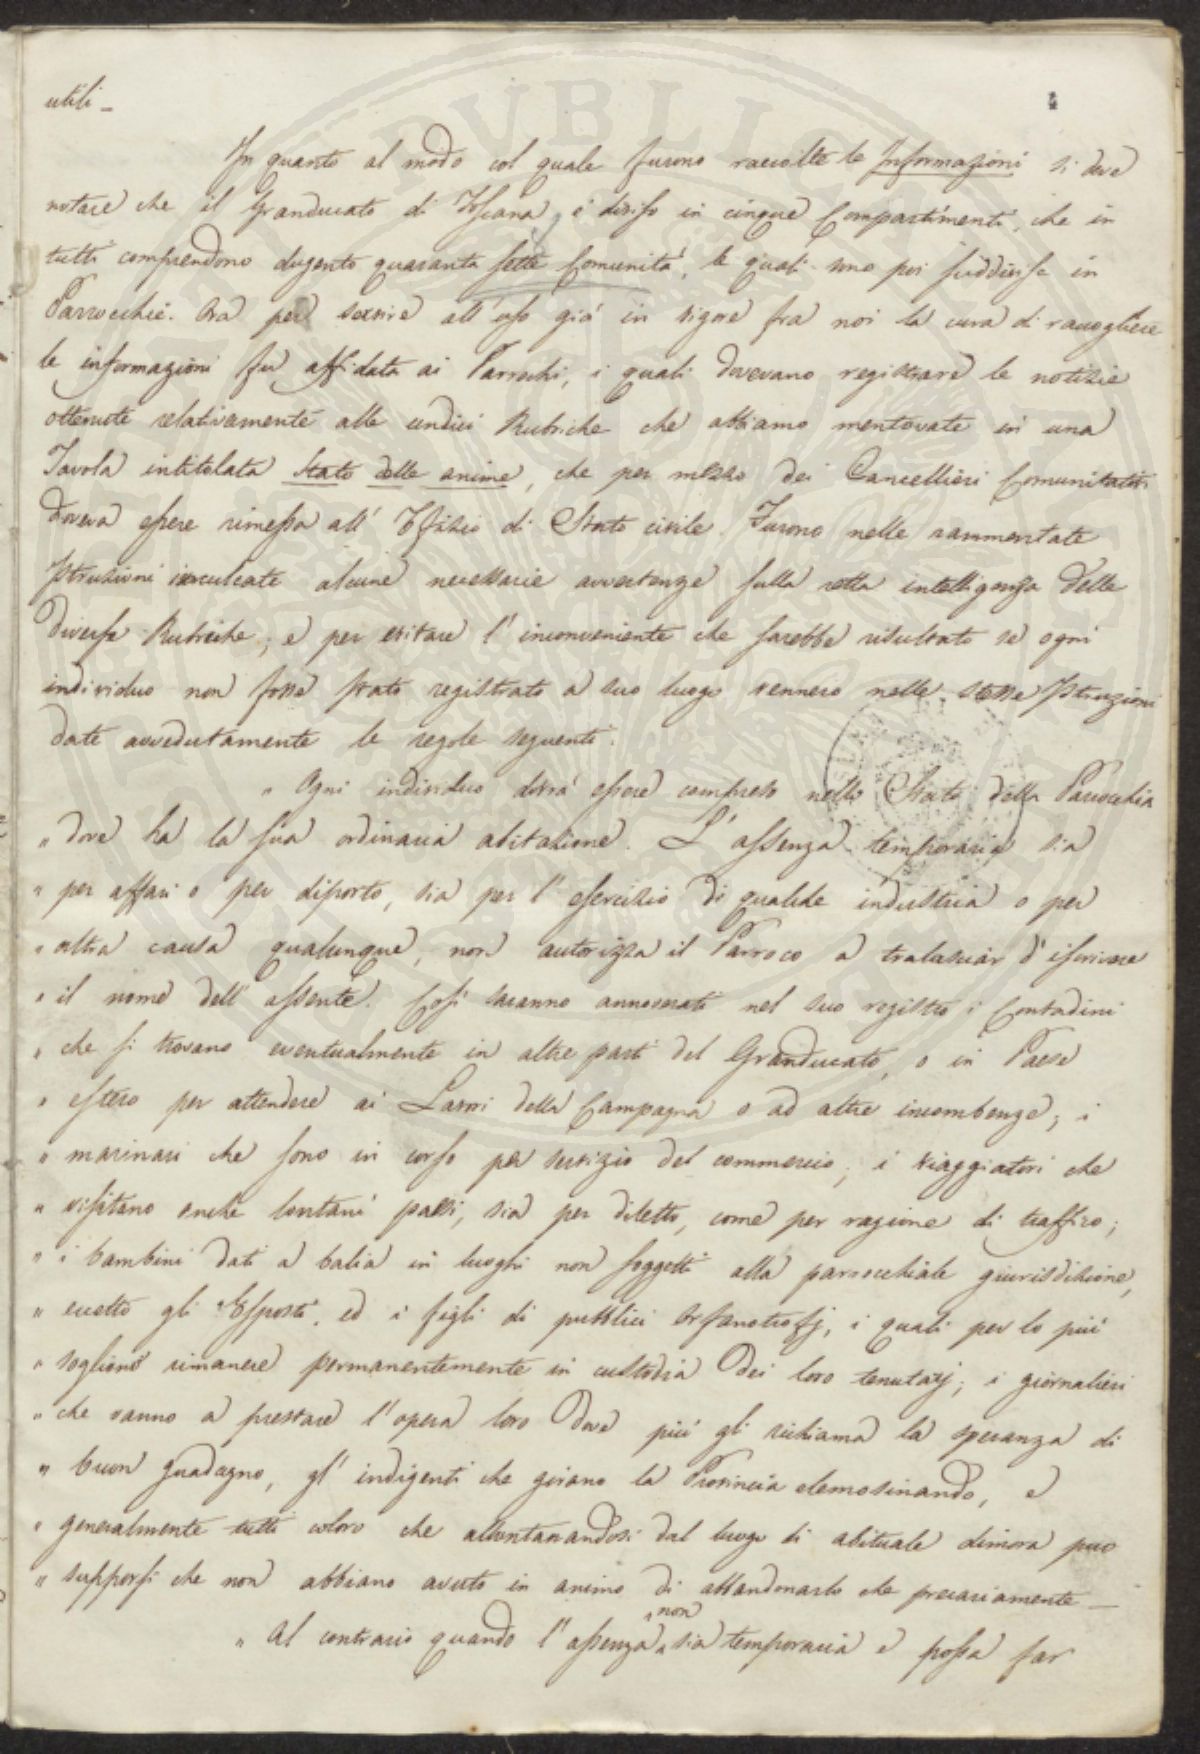 utili -
4
In quanto al modo col quale furono raccolte le Informazioni si deve
notare che il Granducato di Toscana è diviso in cinque Compartimenti, che in
tutti comprendono dugento quaranta sette Comunità, le quali sono poi suddivise in
Parrocchie. Ora per servire all'uso già in vigore fra noi la cura di raccogliere
le informazioni fu affidata ai Parrochi, i quali dovevano registrare le notizie
ottenute relativamente alle undici Rubriche che abbiamo mentovate in una
Tavola intitolata Stato delle anime, che per mezzo dei Cancellieri Comunitativi
doveva essere rimessa all' Ufizio di Stato civile. Furono nelle rammentate
Istruzioni inculcate alcune necessarie avvertenze sulla retta intelligenza delle
diverse Rubriche; e per evitare l' inconveniente che sarebbe risultato se ogni
individuo non fosse stato registrato a suo luogo vennero nelle stesse Istruzioni
date avvedutamente le regole seguenti.
" Ogni individuo dovrà essere compreso nello Stato della Parrochia
" dove ha la sua ordinaria abitazione. L' assenza temporaria sia
" per affari o per diporto, sia per l' esercizio di qualche industria o per
" altra causa qualunque, non autorizza il Parroco a tralasciar d' iscrivere
" il nome dell' assente. Così saranno annoverati nel suo registro i Contadini
" che si trovano eventualmente in altre parti del Granducato, o in Paese
" estero per attendere ai Lavori della Campagna o ad altre incombenze; i
" marinari che sono in corso per servizio del commercio; i viaggiatori che
" visitano anche lontani paesi, sia per diletto, come per ragione di traffico;
" i bambini dati a balia in luoghi non soggetti alla parrocchiale giurisdizione,
" eccetto gli Esposti, ed i figli di pubblici Orfanotrofj, i quali per lo più
" sogliono rimanere permanentemente in custodia dei loro tenutarj; i giornalieri
" che vanno a prestare l' opera loro dove più gli richiama la speranza di
" buon guadagno, gl' indigenti che girano la Provincia elemosinando, e
" generalmente tutti coloro che allontanandosi dal luogo di abituale dimora può
" supporsi che non abbiano avuto in animo di abbandonarlo che precariamente -
" Al contrario quando l' assenza non sia temporaria e possa far